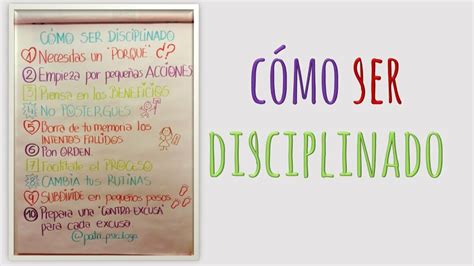 CÓMO SER DISCIPLINADO
1 Necesitas un "PORQUÉ" ¿?
2 Empieza por pequeñas ACCIONES
3 Piensa en los BENEFICIOS
4 No PosTERGUES
5 Borra de tu memoria los
INTENTOS FALLIDOS
6 Pon ORDEN.
7 Facilítate el PROCESO
8 CAMBIA tus RUTINAS
9 SUBDIVIDE en pequeños pasos
10 Prepara una "CONTRA-EXCUSA"
para cada excusa
CÓMO SER
DISCIPLINADO